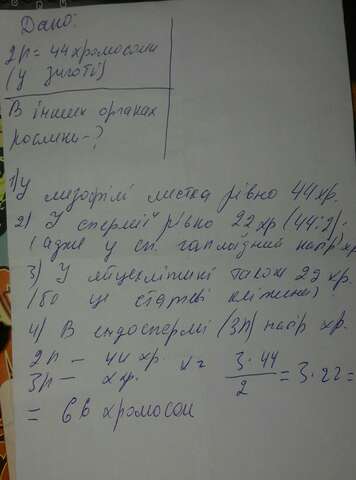 Дано:
2n = 44 хромосоми
(у зиготі)
В інших органах
рослини - ?
1) У мезофілі листка рівно 44 хр.
2) У спермії рівно 22 хр (44:2),
(адже у сп. гаплоїдний набір хр
3) У яйцеклітині також 22 хр.
(бо це статеві клітини)
4) В ендоспермі (3n) набір хр.
2n — 44 хр.
3n — x хр. x = 3·44/2 = 3·22 =
= 66 хромосом